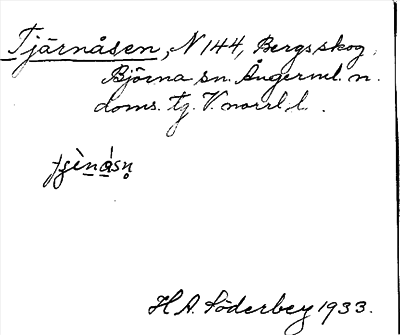 Tjärnåsen, N 144, Bergs skog,
Björna sn. Ångerml. n.
doms. tg. V. norrl. l.
H A. Söderbey 1933.